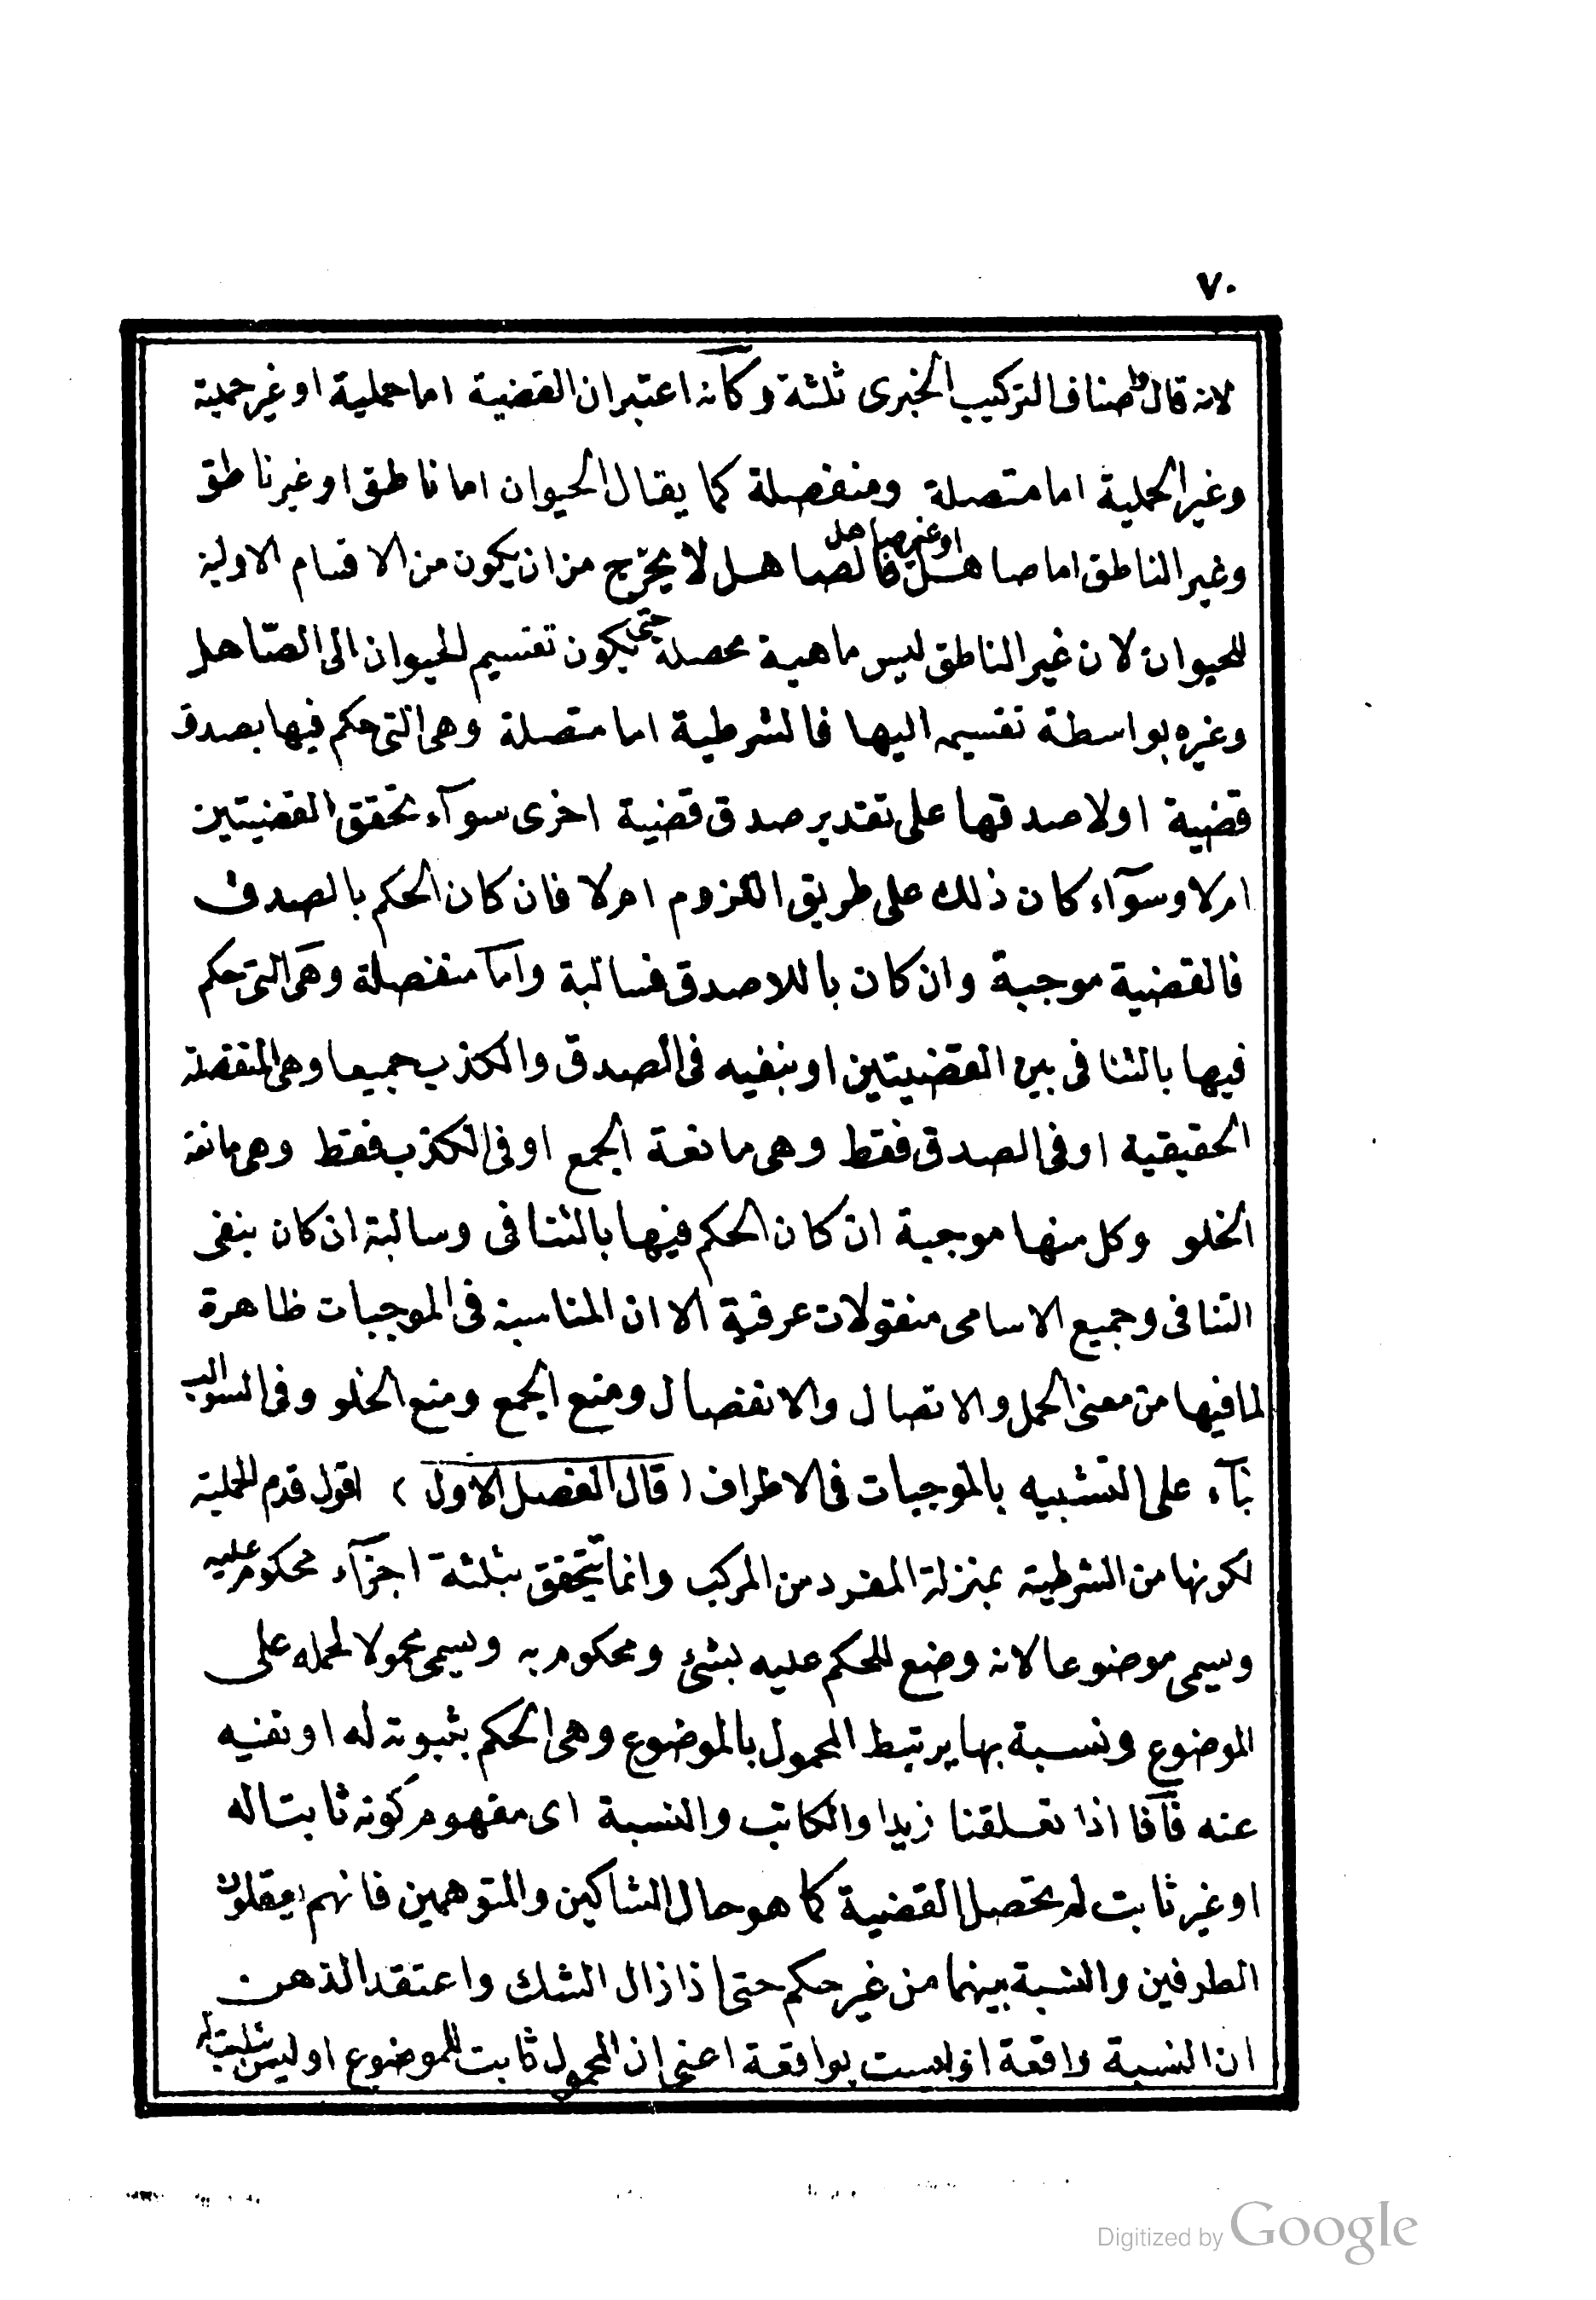 ٧٠
لانه قال واصناف التركيب الخبرى ثلثة وكأنه اعتبر ان القضية اما حملية او غير حملية
وغير الحملية اما متصلة ومنفصلة كما يقال الحيوان اما ناطق او غير ناطق
وغير الناطق اما صاهل او غير صاهل فالصاهل لا يخرج من ان يكون من الاقسام الاولية
للحيوان لان غير الناطق ليس ماهية محصلة حتى يكون تقسيم الحيوان الى الصّاهل
وغيره بواسطة تقسيمه اليها فالشرطية اما متصلة وهى التى حكم فيها بصدق
قضية اولا صدقها على تقدير صدق قضية اخرى سوآء تحقق القضيتين
ام لا وسوآء كان ذلك على طريق اللزوم ام لا فان كان الحكم بالصدق
فالقضية موجبة وان كان باللاصدق فسالبة واما منفصلة وهى التى حكم
فيها بالتنافى بين القضيتين او بنفيه فى الصدق والكذب جميعا وهى المنفصلة
الحقيقية او فى الصدق فقط وهى مانعة الجمع او فى الكذب فقط وهى مانعة
الخلو وكل منها موجبة ان كان الحكم فيها بالتنافى وسالبة ان كان بنفى
التنافى وجميع الاسامى منقولات عرفية الا ان المناسبة فى الموجبات ظاهرة
لما فيها من معنى الحمل والاتصال والانفصال ومنع الجمع ومنع الخلو وفى السوالب
بنآء على التشبيه بالموجبات فى الاطراف (قال الفصل الاول) اقول قدم الحملية
لكونها من الشرطية بمنزلة المفرد من المركب وانما تتحقق بثلثة اجزآء محكوم عليه
ويسمى موضوعا لانه وضع للحكم عليه بشئ ومحكوم به ويسمى محمولا لحمله على
الموضوع ونسبة بها يرتبط المحمول بالموضوع وهى الحكم بثبوته له او نفيه
عنه فآنا اذا تعلقنا زيدا والكاتب والنسبة اى مفهوم كونه ثابتا له
او غير ثابت لم تحصل القضية كما هو حال الشاكين والمتوهمين فانهم يعقلون
الطرفين والنسبة بينهما من غير حكم حتى اذا زال الشك واعتقد الذهن
ان النسبة واقعة او ليست بواقعة اعنى ان المحمول ثابت للموضوع او ليس بثابت له
Digitized by Google